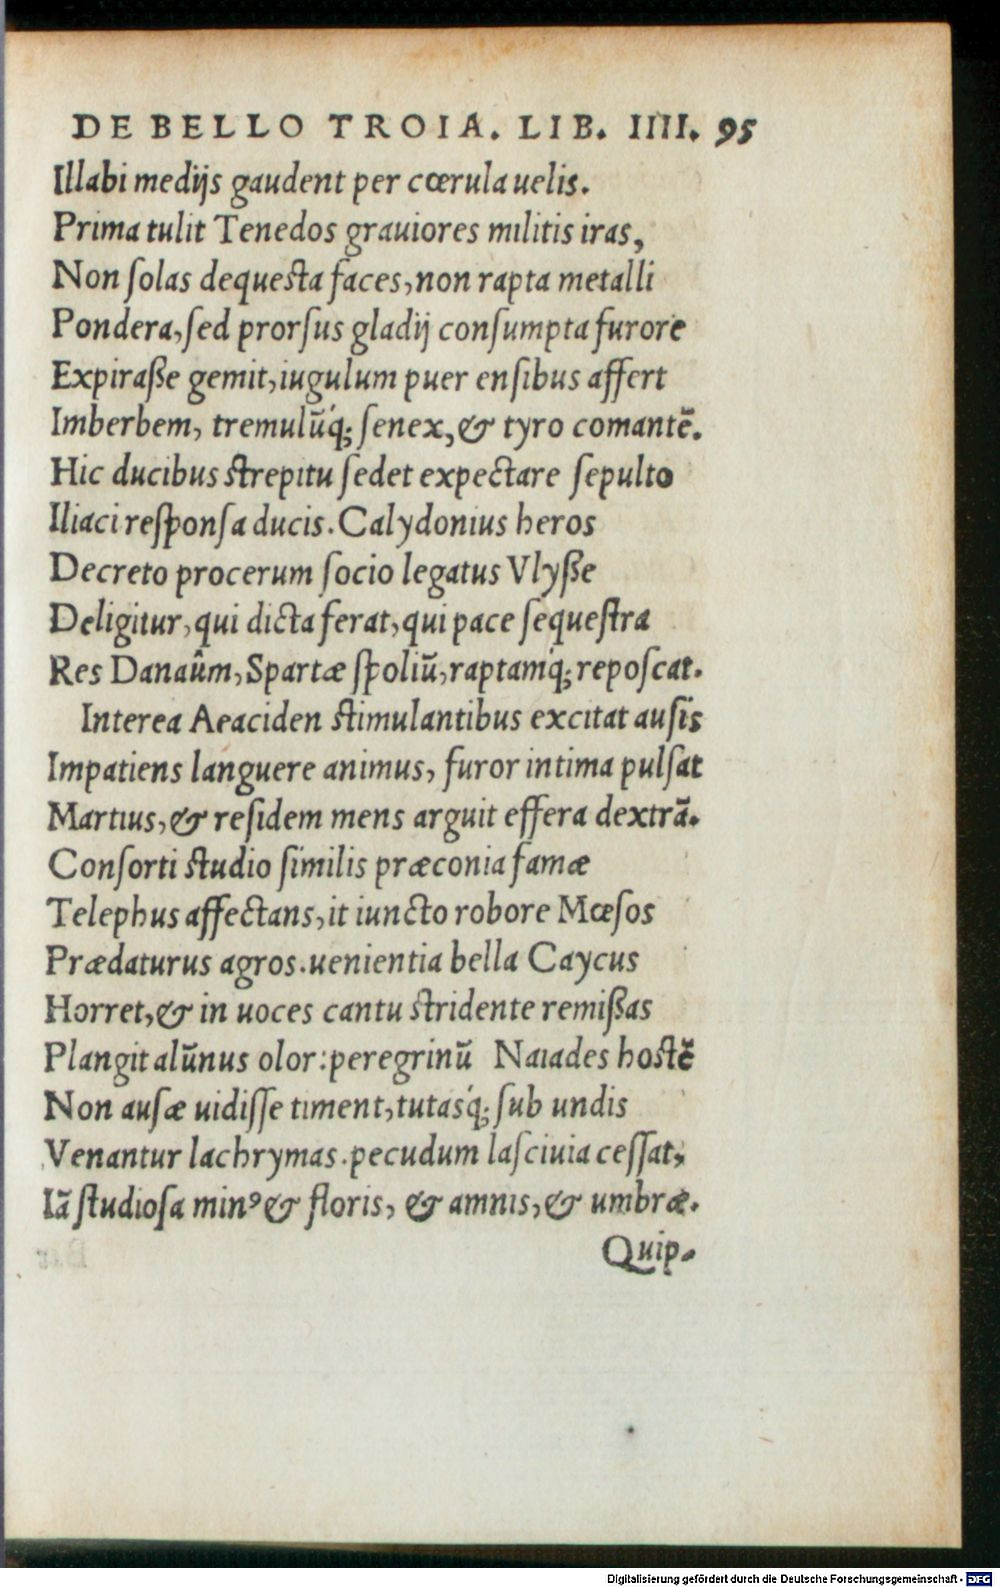 DE BELLO TROIA. LIB. IIII. 95
Illabi medijs gaudent per cœrula uelis.
Prima tulit Tenedos grauiores militis iras,
Non ſolas dequeſta faces, non rapta metalli
Pondera, ſed prorſus gladij conſumpta furore
Expiraße gemit, iugulum puer enſibus affert
Imberbem, tremulūq́; ſenex, & tyro comantē.
Hic ducibus ſtrepitu ſedet expectare ſepulto
Iliaci reſponſa ducis. Calydonius heros
Decreto procerum ſocio legatus Vlyße
Deligitur, qui dicta ferat, qui pace ſequeſtra
Res Danaûm, Spartæ ſpoliū, raptamq́; repoſcat.
Interea Aeaciden ſtimulantibus excitat auſis
Impatiens languere animus, furor intima pulſat
Martius, & reſidem mens arguit effera dextrā.
Conſorti ſtudio ſimilis præconia famæ
Telephus affectans, it iuncto robore Mœſos
Prædaturus agros. uenientia bella Caycus
Horret, & in uoces cantu ſtridente remißas
Plangit alūnus olor: peregrinū Naiades hoſtē
Non auſæ uidiſſe timent, tutasq́; ſub undis
Venantur lachrymas. pecudum laſciuia ceſſat,
Iā ſtudioſa minꝰ & floris, & amnis, & umbræ.
Quip-
Digitalisierung gefördert durch die Deutsche Forschungsgemeinschaft - DFG